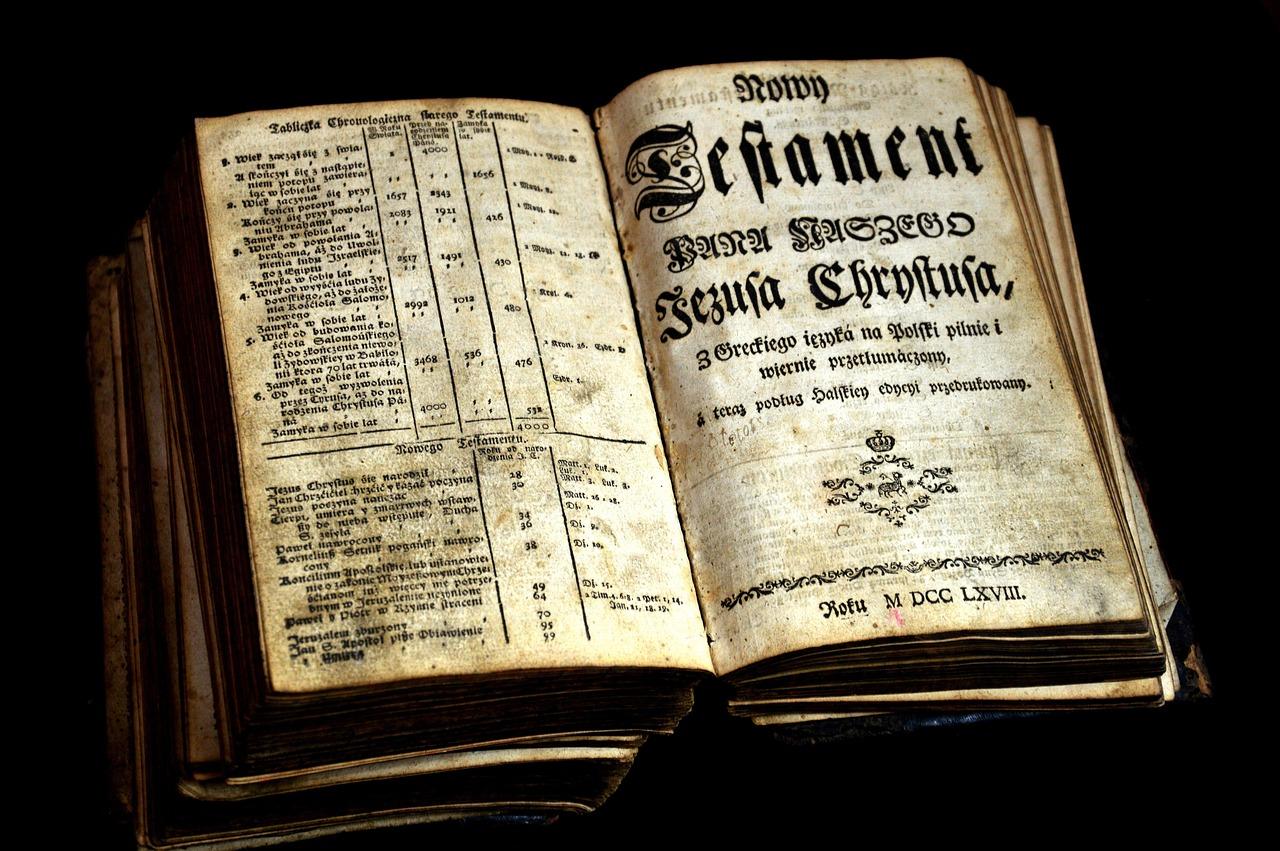 Tabliczka Chronologiczna starego Testamentu.
W Roku Swiata. Przed na- rodzeniem Chrystusa Pana. Zamyka w sobie lat.
1. Wiek zaczął się z swia-
tem 1 4000 1 Moy. 1
A skończył się z nastąpie-
niem potopu zawiera-
iąc w sobie lat 1656
2. Wiek zaczyna się przy
końcu potopu 1657 2343
Kończy się przy powoła-
niu Abrahama 2083 1921
Zamyka w sobie lat 426
3. Wiek od powołania A-
brahama, aż do Uwol-
nienia ludu Izraelskie-
go z Egiptu 2517 1491
Zamyka w sobie lat 430
4. Wiek od wyyścia ludu Zy-
dowskiego, aż do założe-
nia Kościoła Salomo-
nowego 2992 1012
Zamyka w sobie lat 480
5. Wiek od budowania ko-
ścioła Salomońskiego
aż do zkończenia niewo-
li Zydowskiey w Babilo-
nii ktora 70 lat trwała, 3468 536
Zamyka w sobie lat 476
6. Od tegoż wyzwolenia
przez Cyrusa, aż do na-
rodzenia Chrystusa Pa-
na 4000
Zamyka w sobie lat 532
4000
Nowego Testamentu.
Roku od naro-
dzenia J. C.
Jezus Chrystus się narodził Matt. 1. Luk. 2.
Jan Chrzciciel chrzcić y kazać poczyna 28
Jezus poczyna nauczać 30
Cierpi, umiera y zmartwych wstaw-
szy do nieba wstępuie, Ducha
S. zsyła 34
Paweł nawrocony 36 Dz. 9.
Korneliusz Setnik pogański nawro-
cony 38 Dz. 10.
Koncilium Apostolskie, lub ustanowie-
nie o zakonie Moyżeszowym Chrze-
ścianom iuż więcey nie potrze-
bnym w Jeruzalemie uczynione 49 Dz. 15.
Paweł y Piotr w Rzymie straceni 64 2 Tim. 4. 6. 8. 2 Pet. 1, 14.
Jan. 21, 18. 19.
Jeruzalem zburzony 70
Jan S. Apostoł pisze Obiawienie 95
y umiera 99
Nowy
Testament
PANA NASZEGO
Jezusa Chrystusa,
Z Greckiego ięzyká na Polski pilnie i
wiernie przetłumáczony,
á teraz podług Halskiey edycyi przedrukowany.
Roku M DCC LXVIII.